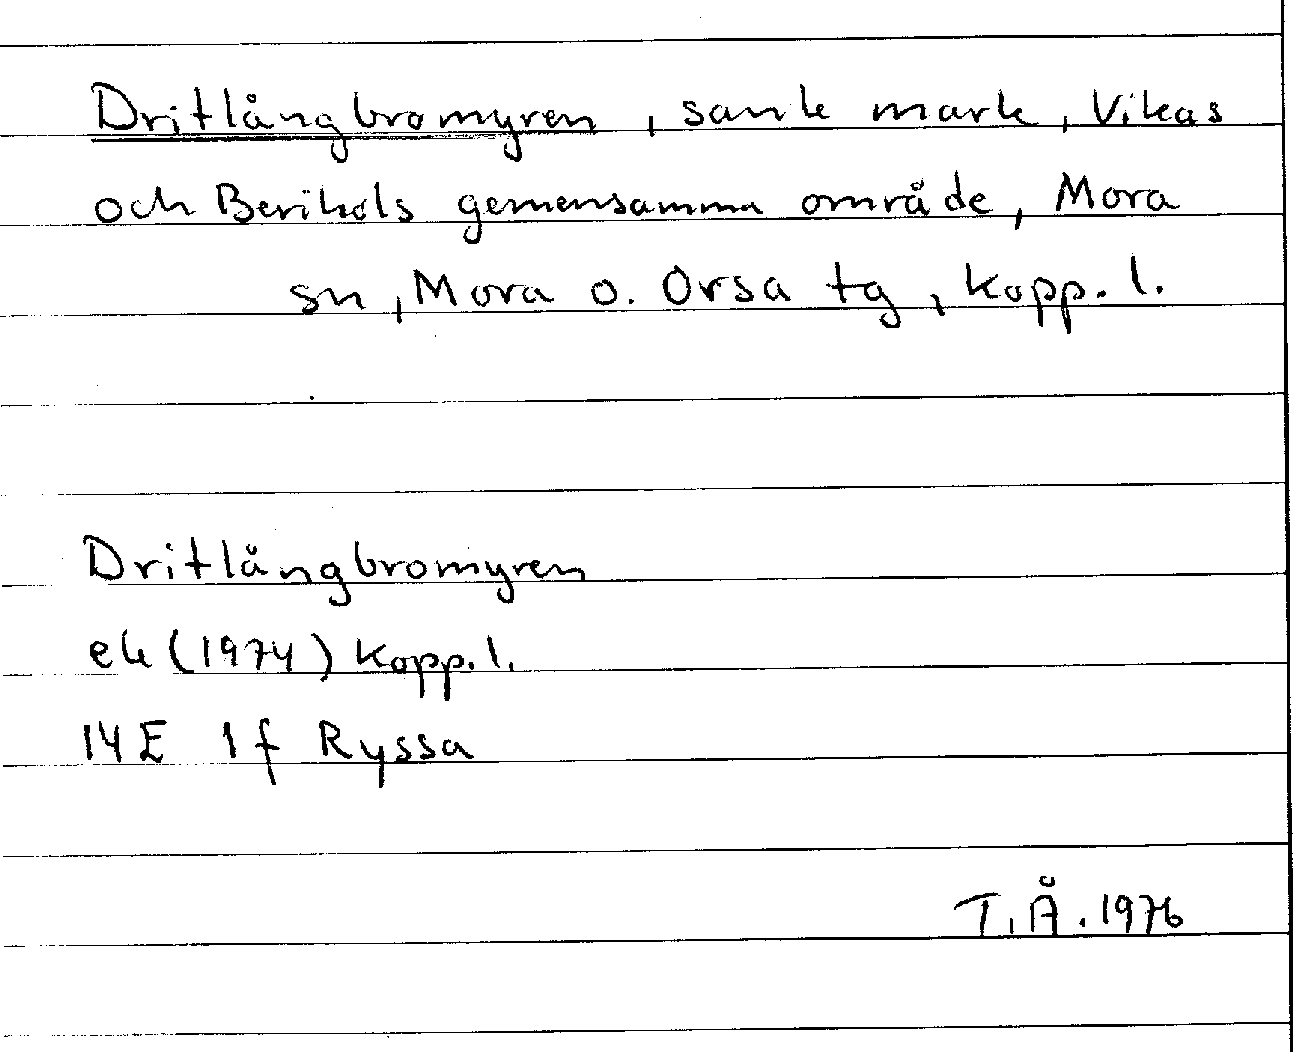 Dritlångbromyren, sank mark, Vikas
och Berikols gemensamma område, Mora
sn, Mora o. Orsa tg, Kopp. l.
Dritlångbromyren
ek (1974) Kopp. l.
14 E 1 f Ryssa
T. Å. 1976